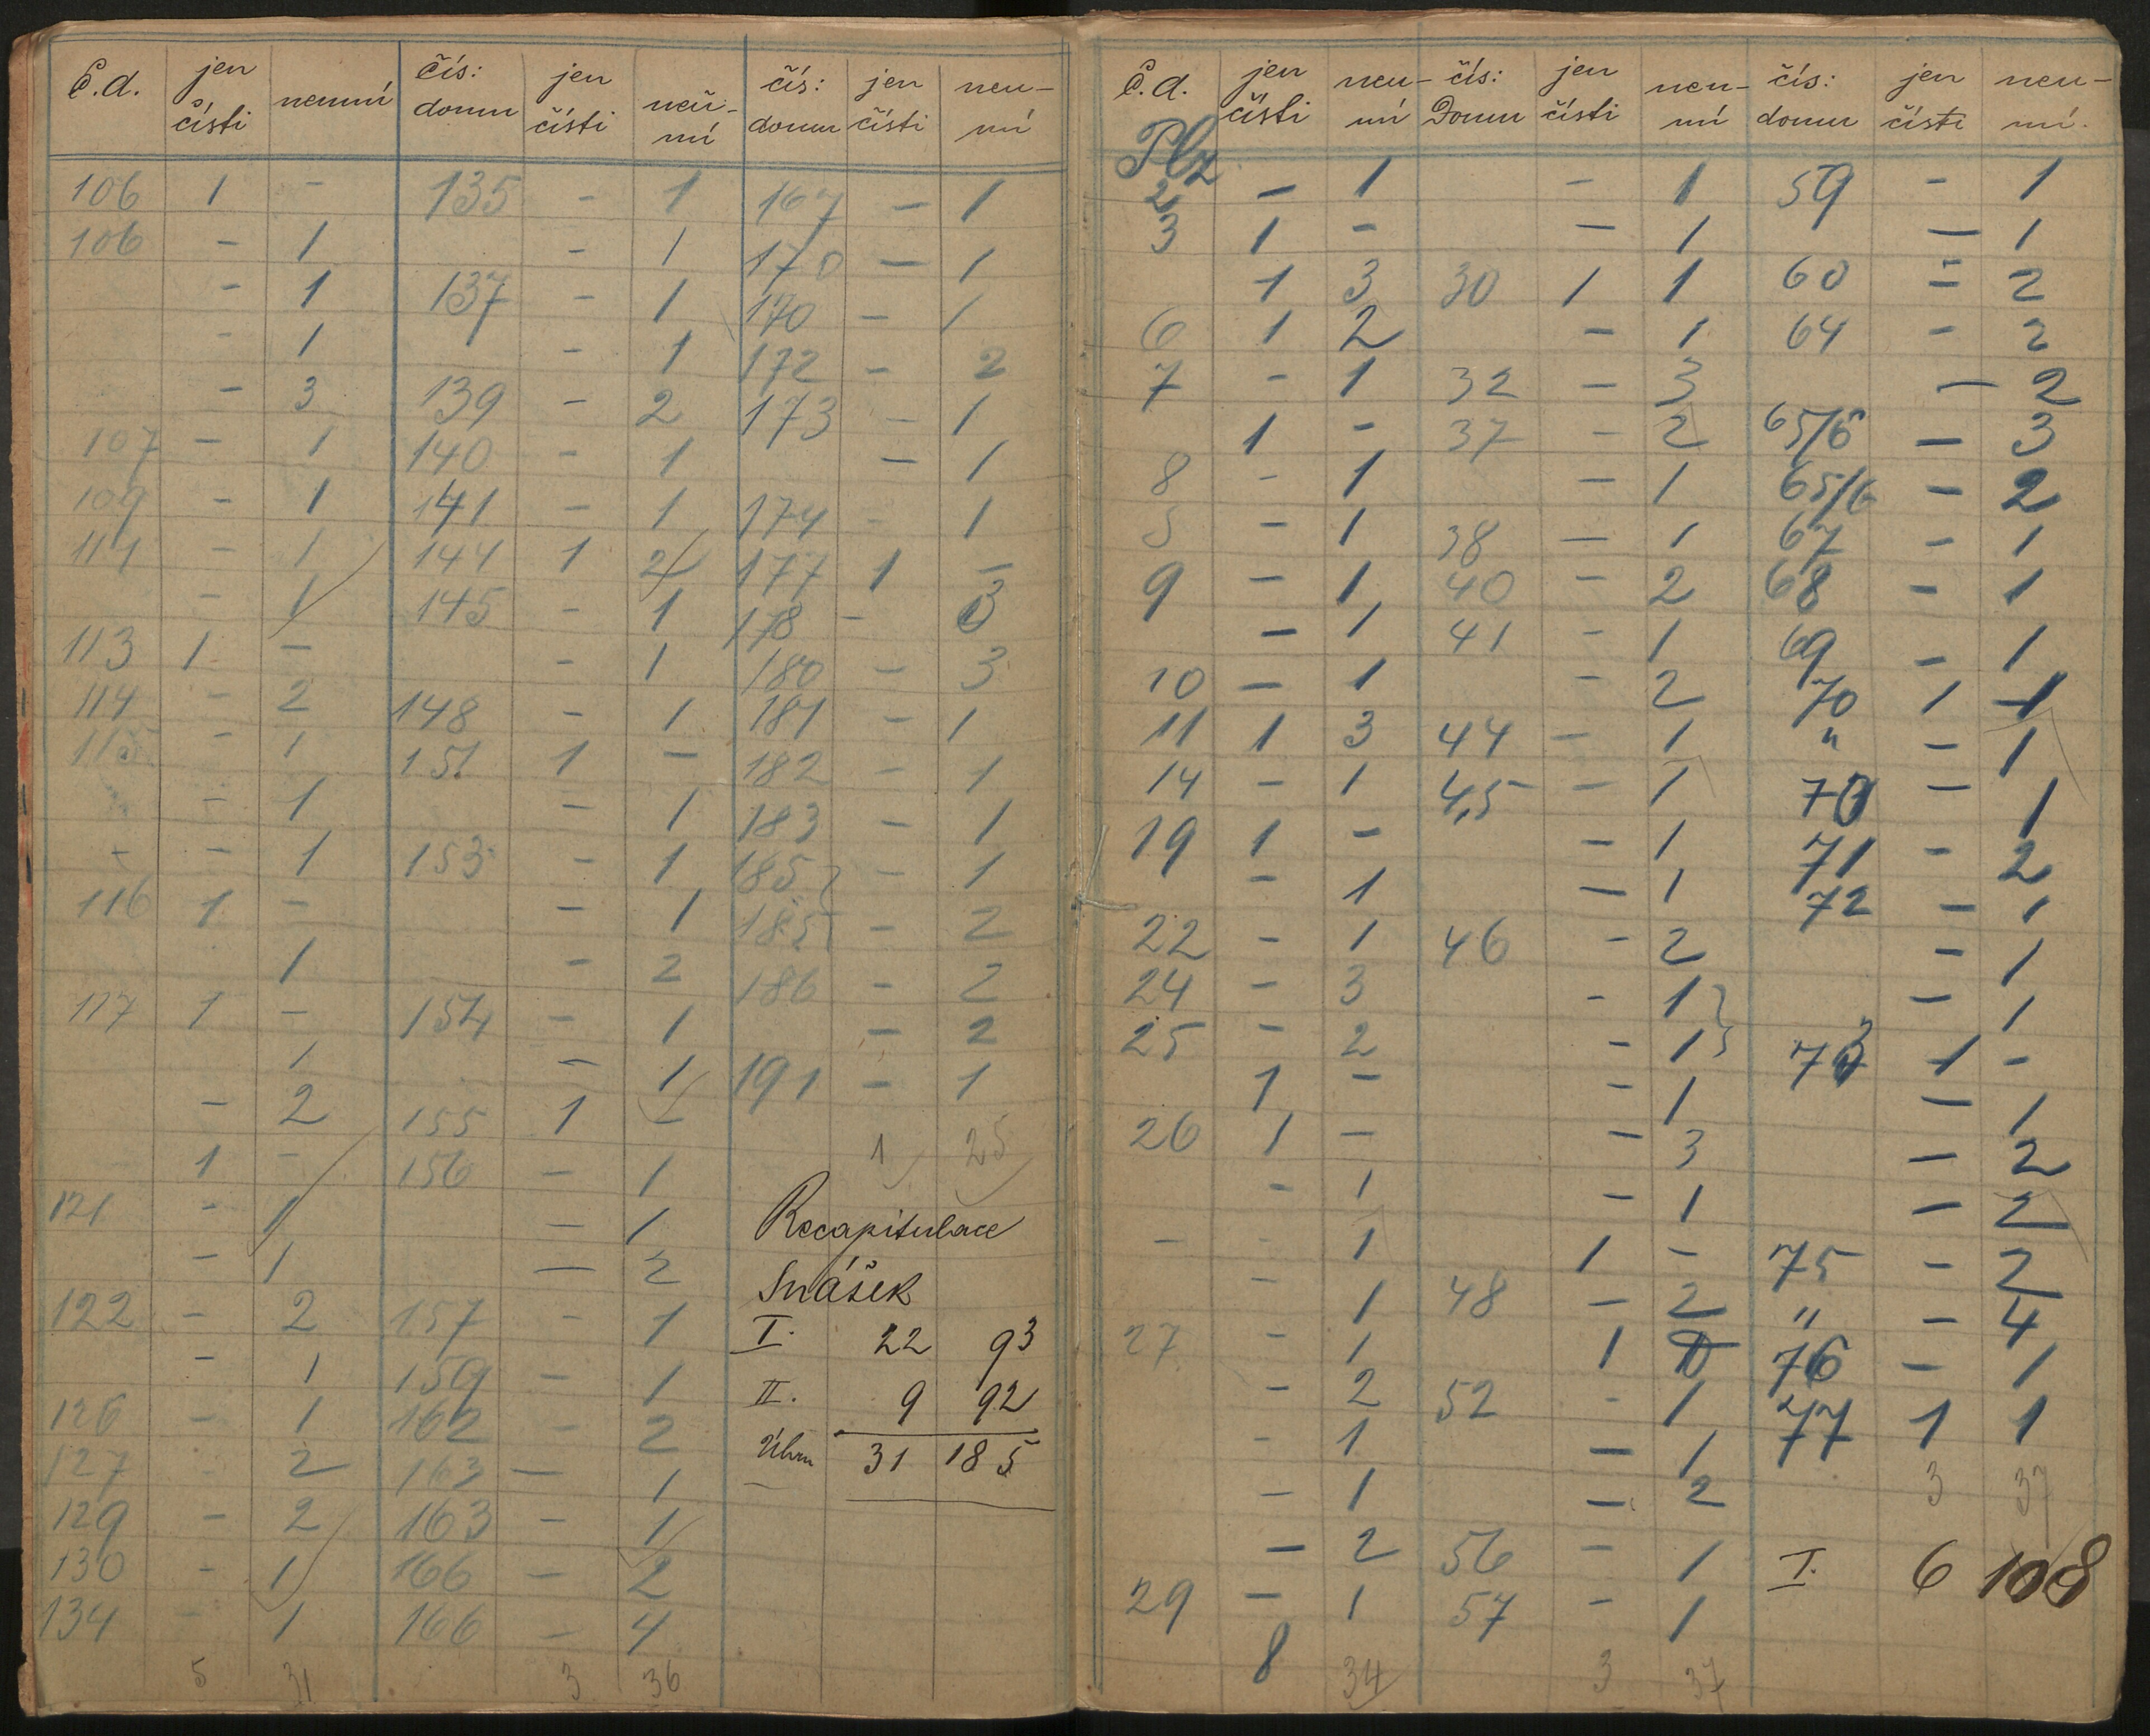 Č.d. jen čísti neumí čís: domu jen čísti neu- mí čís: domu jen čísti neu- mí
106 1 - 135 - 1 167 - 1
106 - 1 - 1 170 - 1
- 1 137 - 1 170 - 1
- 1 - 1 172 - 2
- 3 139 - 2 173 - 1
107 - 1 140 - 1 - 1
109 - 1 141 - 1 174 - 1
111 - 1 144 1 2 177 1 -
- 1 145 - 1 178 - 3
113 1 - - 1 180 - 3
114 - 2 148 - 1 181 - 1
115 - 1 151 1 - 182 - 1
- 1 - 1 183 - 1
- - 1 153 - 1 185 - 1
116 1 - - 1 185 - 2
1 - 2 186 - 2
117 1 - 154 - 1 - 2
1 - 1 191 - 1
- 2 155 1 - 1 25
1 - 156 - 1
121 - 1 - 1 Recapitulace
- 1 - 2 Snášek
122 - 2 157 - 1 I. 22 93
- 1 159 - 1 II. 9 92
126 - 1 162 - 2 Úhrn 31 185
127 - 2 163 - 1
129 - 2 163 - 1
130 - 1 166 - 2
134 - 1 166 - 4
5 31 3 36
Č.d. jen čísti neu- mí čís: Domu jen čísti neu- mí čís: domu jen čísti neu- mí.
Plz
2 - 1 - 1 59 - 1
3 1 - - 1 - 1
1 3 30 1 1 60 - 2
6 1 2 - 1 64 - 2
7 - 1 32 - 3 - 2
1 - 37 - 2 65/6 - 3
8 - 1 - 1 65/6 - 2
5 - 1 38 - 1 67 - 1
9 - 1 40 - 2 68 - 1
- 1 41 - 1 69 - 1
10 - 1 - 2 70 1 1
11 1 3 44 - 1 " - 1
14 - 1 45 - 1 70 - 1
19 1 - - 1 71 - 2
- 1 - 1 72 - 1
22 - 1 46 - 2 - 1
24 - 3 - 1 - 1
25 - 2 - 1 73 1 -
1 - - 1 - 1
26 1 - - 3 - 2
- 1 - 1 - 2
- - 1 1 - 75 - 2
- 1 48 - 2 " - 4
27 - 1 1 76 - 1
- 2 52 - 1 77 1 1
- 1 - 1 3 37
- 1 - 2
- 2 56 - 1 I. 6 108
29 - 1 57 - 1
8 34 3 37